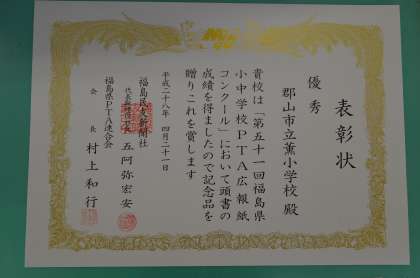 表彰状
優秀
郡山市立薫小学校 殿
貴校は「第五十一回福島県
小中学校PTA広報紙
コンクール」において頭書の
成績を得ましたので記念品を
贈りこれを賞します
平成二十八年 四月二十一日
福島民友新聞社
代表取締役社長 五阿弥宏安
福島県PTA連合会
会長 村上和行